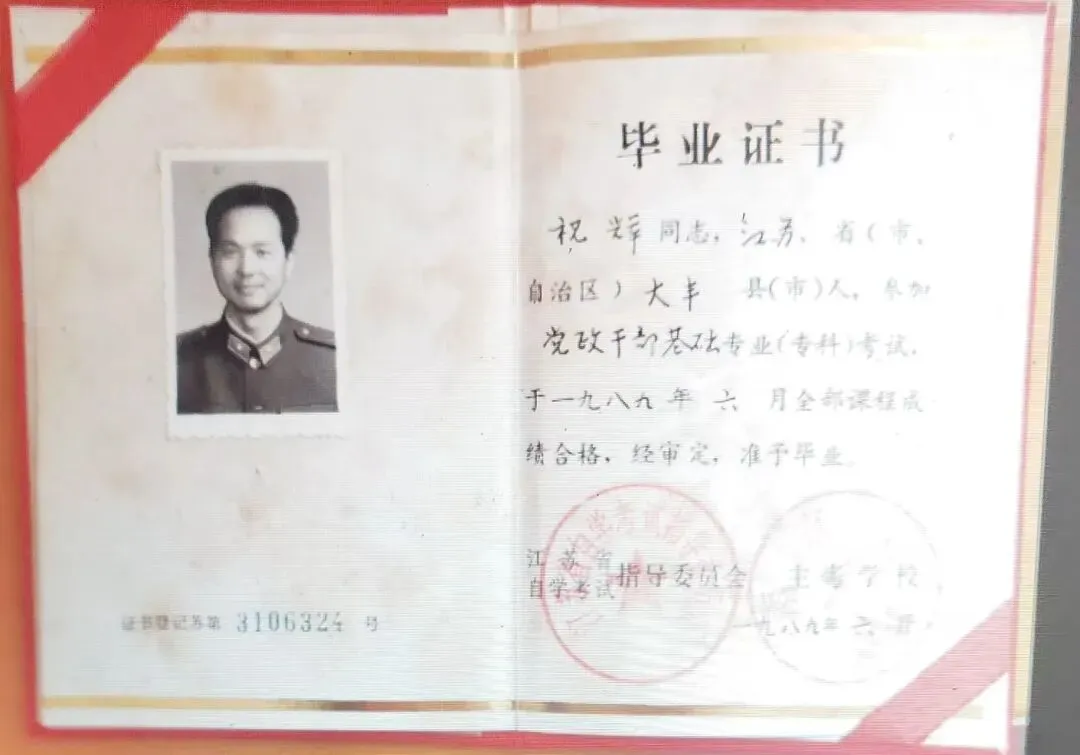 毕业证书
祝辉同志，江苏省（市、
自治区）大丰县（市）人，参加
党政干部基础专业（专科）考试，
于一九八九年六月全部课程成
绩合格，经审定，准予毕业。
江苏省
自学考试 指导委员会 主考学校
一九八九年六月
证书登记苏第 3106324 号